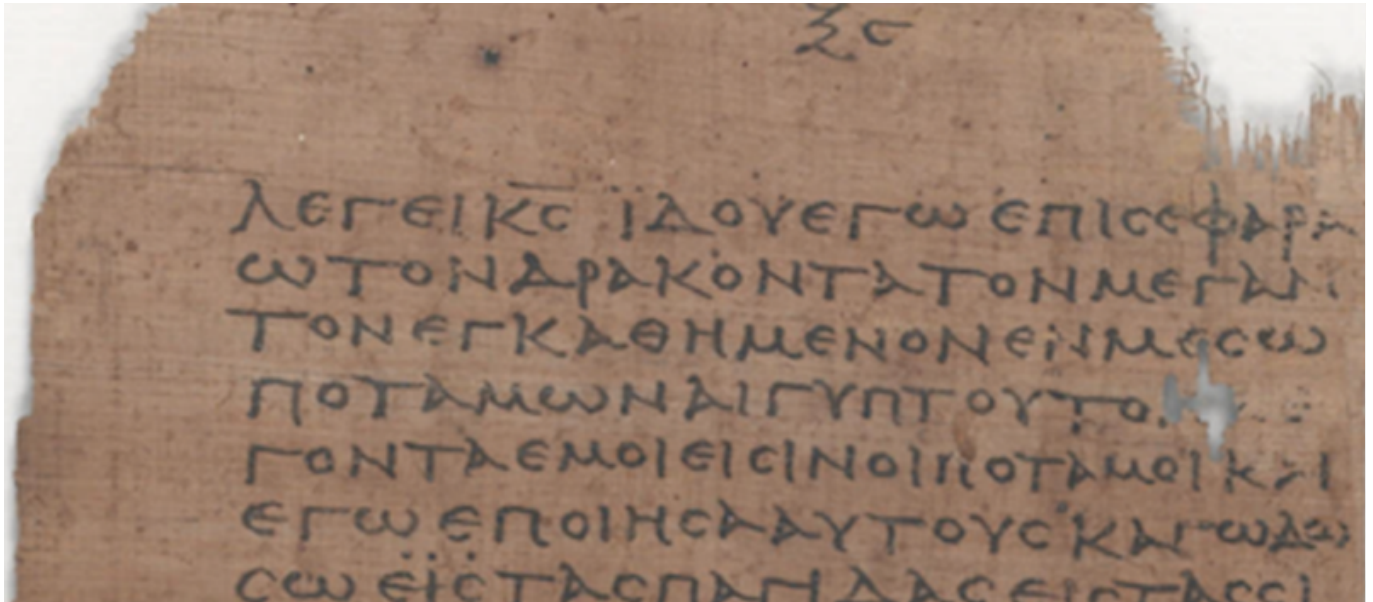 ξϛ
λεγει κ̅ς̅ ϊδου εγω επι σε φαρα
ω τον δρακοντα τον μεγαν
τον εγκαθημενον εινμεσω
ποταμων αιγυπτου τον
γοντα εμοι εισιν οι ποταμοι και
εγω εποιησα αυτους και εγω δω
σω εις τας παγιδας εις τας σι